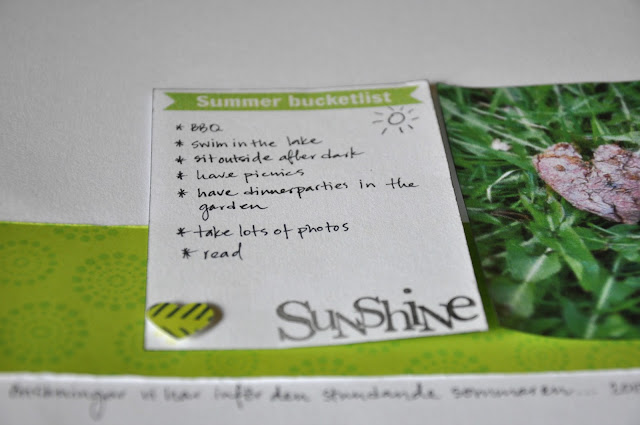 Summer bucketlist
* BBQ
* swim in the lake
* sit outside after dark
* have picnics
* have dinnerparties in the
garden
* take lots of photos
* read
SUNShiNe
vi har inför den stundande sommaren...